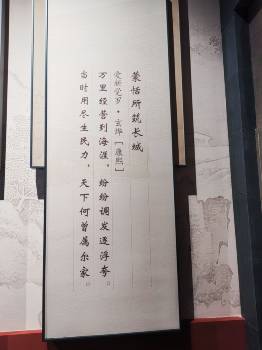 蒙恬所筑长城
爱新觉罗·玄烨［康熙］
万里经营到海涯，纷纷调发逐浮夸。
当时用尽生民力，天下何曾属尔家。